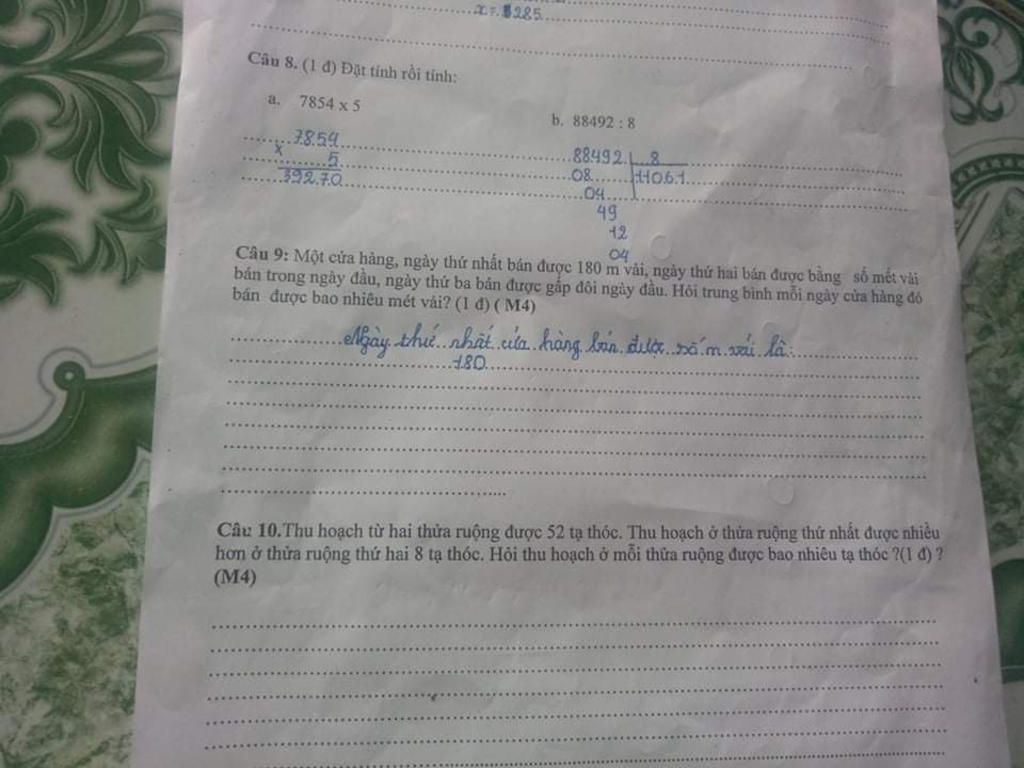 x = 285
Câu 8. (1 đ) Đặt tính rồi tính:
a. 7854 x 5
b. 88492 : 8
7854
x 5
39270
88492 8
08 11061
04
49
12
04
Câu 9: Một cửa hàng, ngày thứ nhất bán được 180 m vải, ngày thứ hai bán được bằng số mét vải
bán trong ngày đầu, ngày thứ ba bán được gấp đôi ngày đầu. Hỏi trung bình mỗi ngày cửa hàng đó
bán được bao nhiêu mét vải? (1 đ) ( M4)
Ngày thứ nhất cửa hàng bán được số m vải là:
180
Câu 10.Thu hoạch từ hai thửa ruộng được 52 tạ thóc. Thu hoạch ở thửa ruộng thứ nhất được nhiều
hơn ở thửa ruộng thứ hai 8 tạ thóc. Hỏi thu hoạch ở mỗi thửa ruộng được bao nhiêu tạ thóc ?(1 đ) ?
(M4)